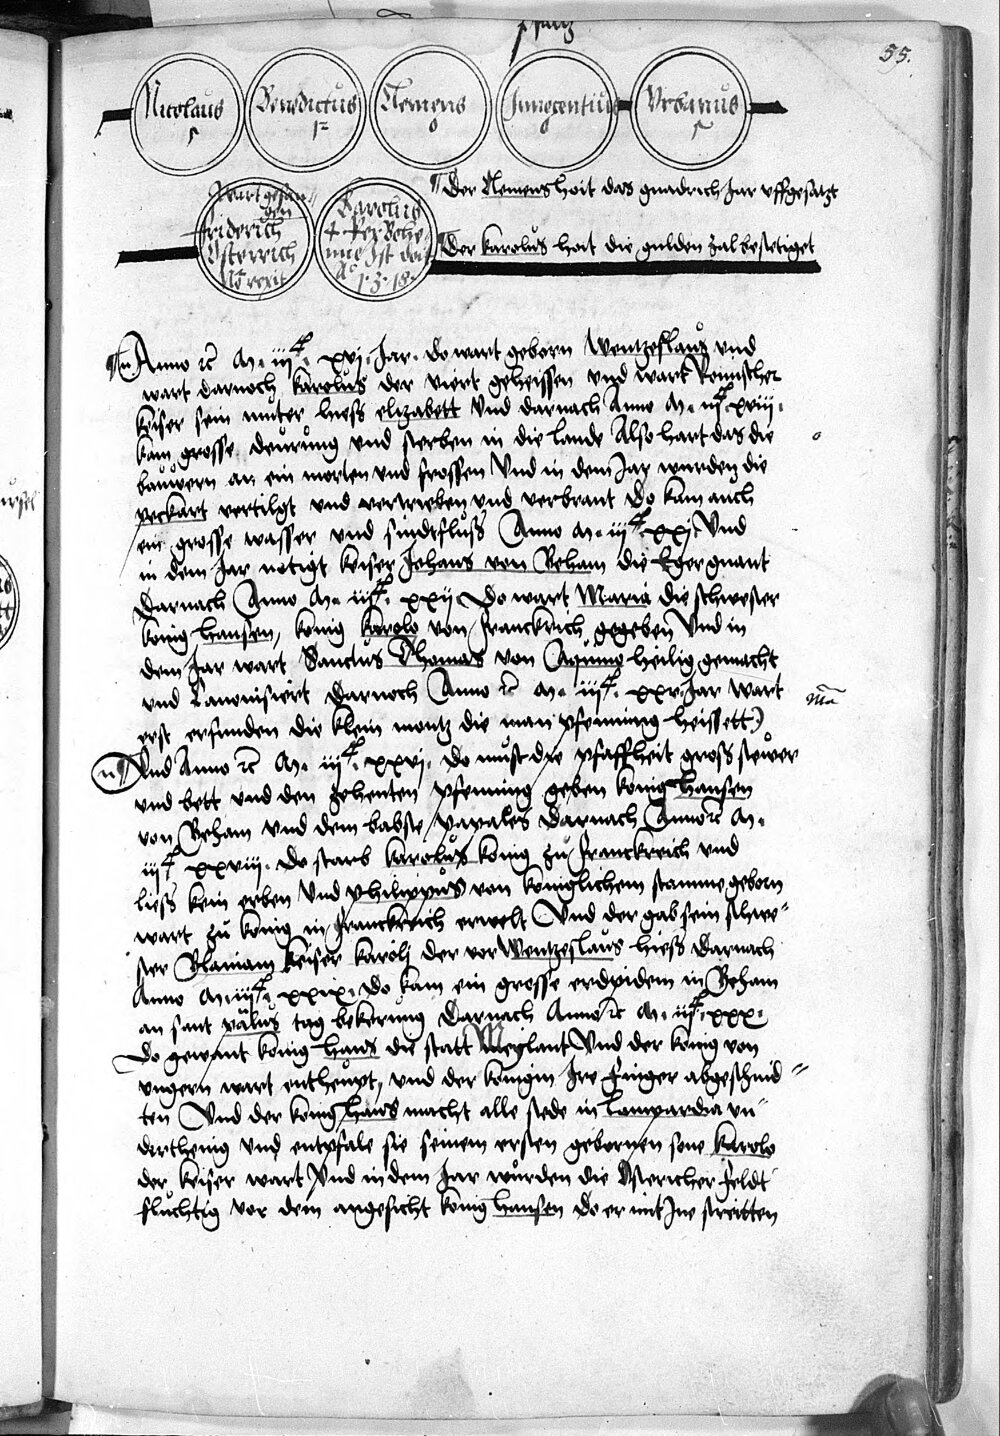 55.
Nicolaus
5
Benedictus
12
Clemens
6
Innocentius
6
Urbanus
5
wart gefan
gen
friderich
Osterrich
No rexit
Karolus
4 Rex Behe
mie Ist
Ao 1318
Der Clemens hoit das gnadrich Jar uffgesatzt
Der karolus hat die gulden zal bestetiget
Anno rc M. iiiC. xvi. Jar. do wart geborn Wentzeslaus und
wart darnoch karolus der viert geheissen und wart Romischer
keiser sein muter hiess elizabett Und darnach Anno M. iiiC xviii.
kam grosse deurung und sterben in die lande Also hart das die
bauwern an ein morten und frossen Und in dem Jar wurden die
vertilgt und vertrieben und verbrant Do kam auch
ein grosse wasser und sindtfluss Anno M. iiiC xxi Und
in dem Jar notigt keiser Johans von Beham die Eger gnant
Darnach Anno M. iiiC. xxii Do wart Maria die schwester
konig hansen, konig karolo von franckrich gegeben Und in
dem Jar wart Sanctus Thomas von Aquino heilig gemacht
und Canonisirt Darnoch Anno rc M. iiiC. xxv Jar wart
erst erfunden die klein montz die man pfenning heissett
Und Anno rc M. iiiC. xxvi. do must die pfaffheit gross stewer
und bett und den zehenten pfenning geben konig hansen
von Beham und dem babste papales Darnach Anno rc M.
iiiC xxviii. do starb karolus konig zu franckreich und
liess kein erben Und philippus von koniglichem stamme geborn
wart zu konig in franckreich erwelt Und der gab sein schwe
ster Blaniam keiser karoli der vor Wentzeslaus hiess Darnach
Anno M. iiiC. xxix. do kam ein grosse erdpidem in Beham
an sant paulus tag bekerung Darnach Anno rc M. iiiC. xxx.
Do gewant konig hans die statt Meylant Und der konig von
ungern wart entheupt, und der konigin Jre finger abgeschnid
ten Und der konig hans macht alle stede in lampardia un
derthenig und entpfale sie seinem ersten gebornen sone karolo
der keiser wart Und in dem Jar wurden die Ostericher feldt
fluchtig vor dem angesicht konig hansen do er mit Jne streitten